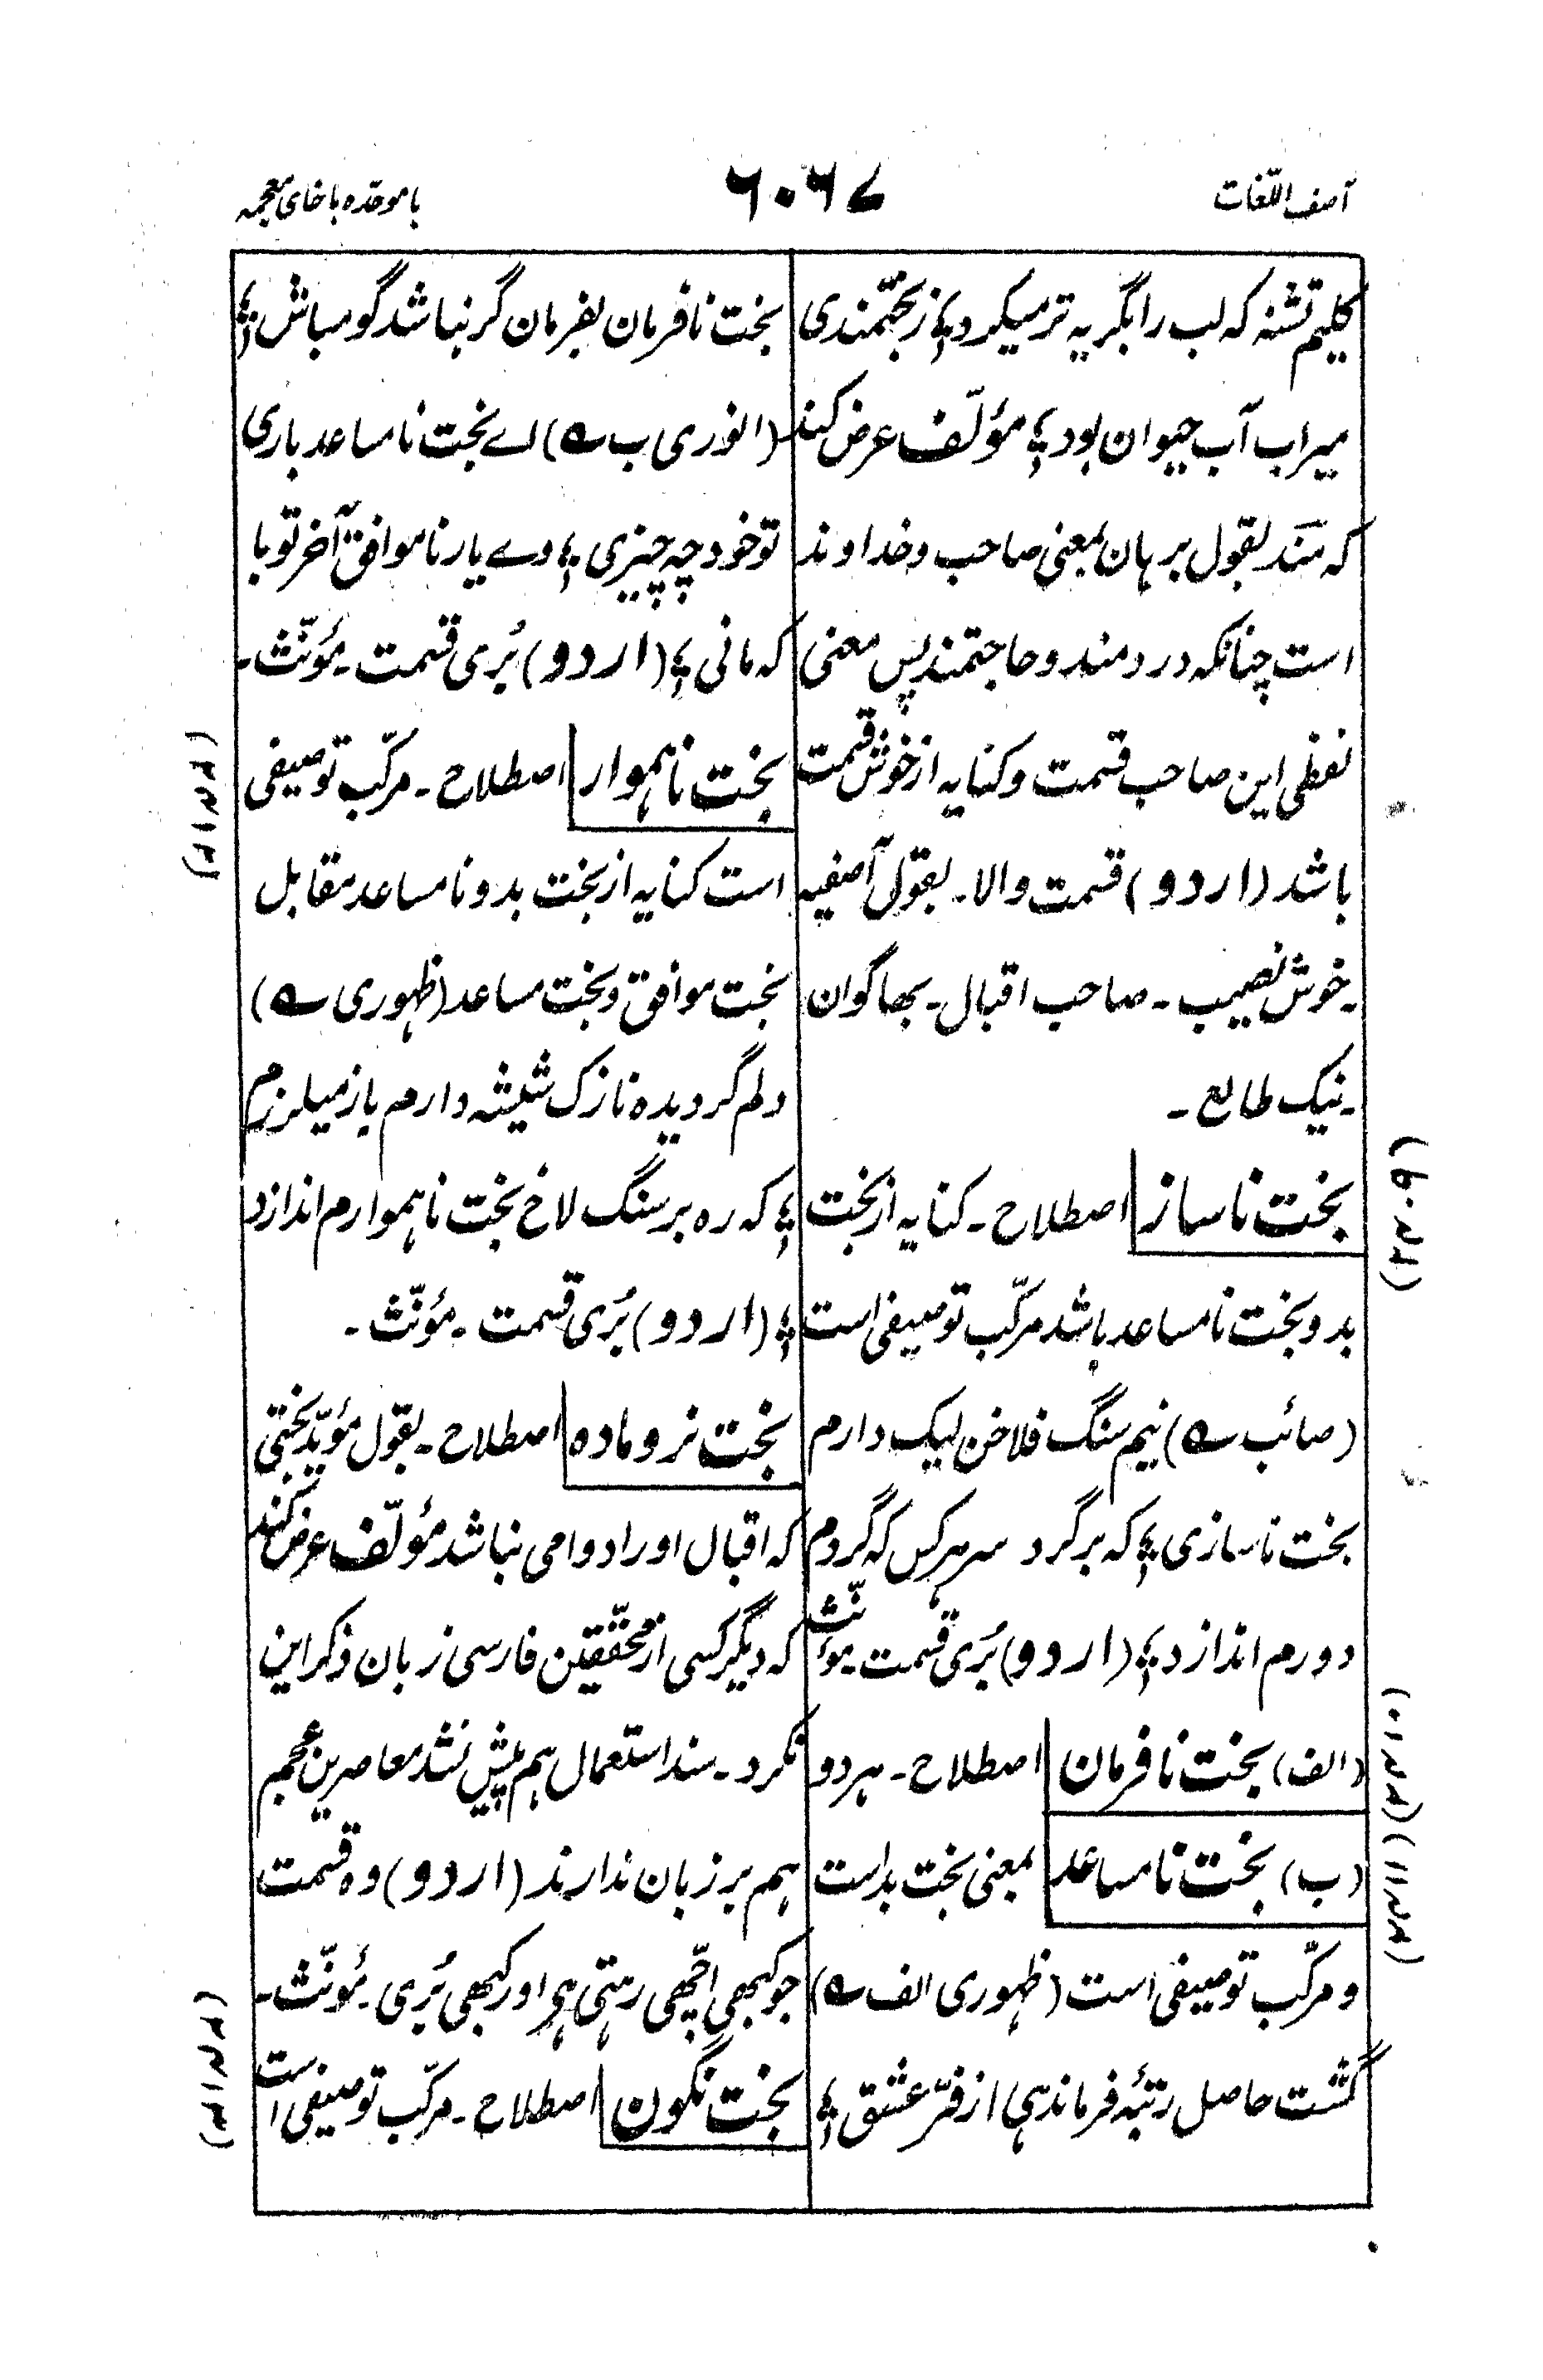 آصف اللّغات
۶۰۶۷
با موحّده با خای معجمہ
کلیم تشنہ کہ لب را بگریہ تر میکرد ؛ ز بختمندی
میراب آب حیوان بود ؛ مؤلّف عرض کند
کہ مَند بقول برہان بمعنی صاحب و خداوند
است چنانکہ دردمند و حاجتمند پس معنی
لفظی این صاحب قسمت و کنایہ از خوش قسمت
باشد (اردو) قسمت والا۔ بقول آصفیہ
۔خوش نصیب ۔ صاحب اقبال۔ بھاگوان
۔نیک طالع ۔
بخت ناساز اصطلاح ۔ کنایہ از بخت
بد و بخت نامساعد باشد مرکّب توصیفی است
(صائب ے) نیم سنگ فلاخن لیک دارم
بخت ناسازی ؛ کہ برگرد سر ہر کس کہ گردم
دورم اندازد ؛ (اردو) بُری قسمت ۔ مؤنّث
(الف) بخت نافرمان اصطلاح ۔ ہر دو
(ب) بخت نامساعد بمعنی بخت بد است
و مرکّب توصیفی است (ظہوری الف ے)
گشت حاصل رتبۂ فرماندہی از فرّ عشق ؛
بخت نافرمان بفرمان گر نباشد گو مباش ؛
(انوری ب ے) اے بخت نامساعد باری
تو خود چہ چیزی ؛ وے یار ناموافق آخر تو با
کہ مانی ؛ (اردو) بُری قسمت ۔ مؤنّث ۔
بخت ناہموار اصطلاح ۔ مرکّب توصیفی
است کنایہ از بخت بد و نامساعد مقابل
بخت موافق و بخت مساعد (ظہوری ے)
دلم گردیدہ نازک شیشہ دارم باز میلرزم
؛ کہ رہ بر سنگ لاخ بخت ناہموارم اندازد
؛ (اردو) بُری قسمت ۔ مؤنّث ۔
بخت نر و مادہ اصطلاح ۔ بقول مؤیّد بختی
کہ اقبال او را دوامی نباشد مؤلّف عرض کند
کہ دیگر کسی از محقّقین فارسی زبان ذکر این
نکرد ۔ سند استعمال ہم پیش نشد معاصرین عجم
ہم بر زبان ندارند (اردو) وہ قسمت
جو کبھی اچّھی رہتی ہے اور کبھی بُری ۔ مؤنّث ۔
بخت نگون اصطلاح ۔ مرکّب توصیفی است